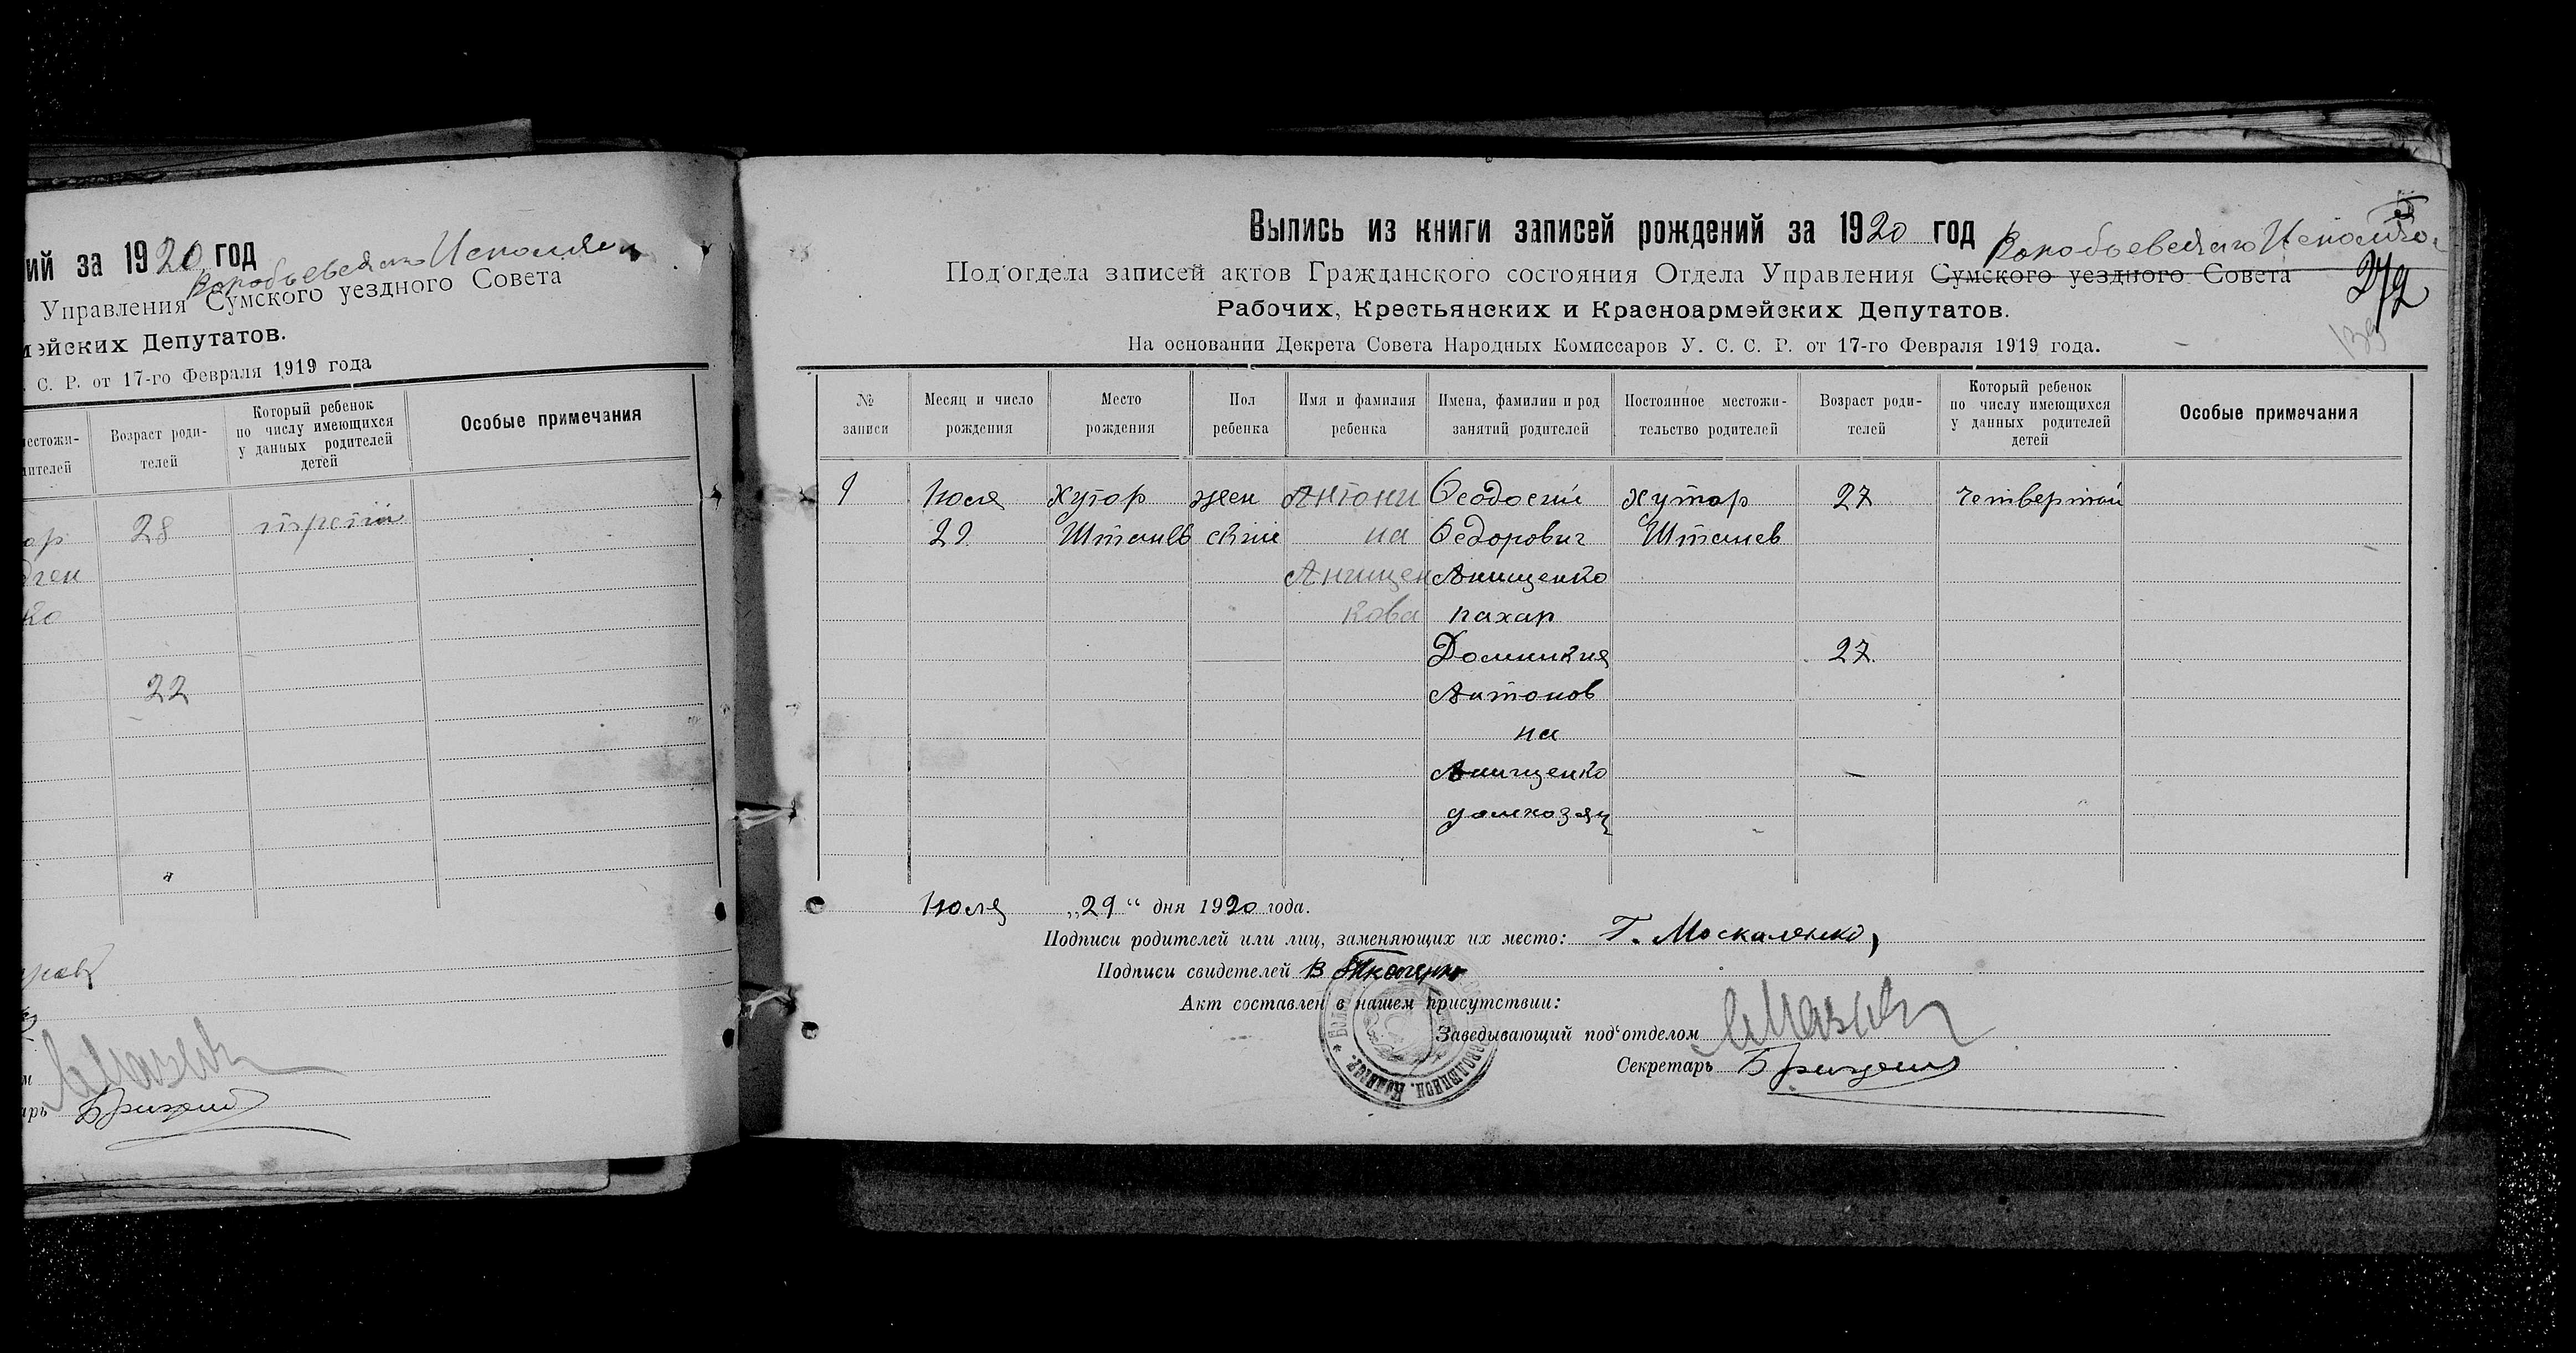 ий за 1920 год
Воробьевского Исполком
Управления Сумского уездного Совета
мейских Депутатов.
С. С. Р. от 17-го Февраля 1919 года
местожи-
дителей
Возраст роди-
телей
Который ребенок
по числу имеющихся
у данных родителей
детей
Особые примечания
28 третий
ко
22
Выпись из книги записей рождений за 1920 год Воробьевского Исполко
Под'отдела записей актов Гражданского состояния Отдела Управления Сумского уездного Совета
272
Рабочих, Крестьянских и Красноармейских Депутатов.
На основании Декрета Совета Народных Комиссаров У. С. С. Р. от 17-го Февраля 1919 года.
№
записи
Месяц и число
рождения
Место
рождения
Пол
ребенка
Имя и фамилия
ребенка
Имена, фамилии и род
занятий родителей
Постоянное местожи-
тельство родителей
Возраст роди-
телей
Который ребенок
по числу имеющихся
у данных родителей
детей
Особые примечания
1 Июля хутор жен Антони Феодосий хутор 27 четвертый
29 Штанев ский на Федорович Штанев
Анищен Анищенко
кова пахар
Домникия 27
Антонов
на
Анищенко
домхозяц
Июля „29“ дня 1920 года.
Подписи родителей или лиц, заменяющих их место: Г. Москаленко,
Подписи свидетелей В Ткаченко
Акт составлен в нашем присутствии:
Заведывающий под'отделом
Секретарь